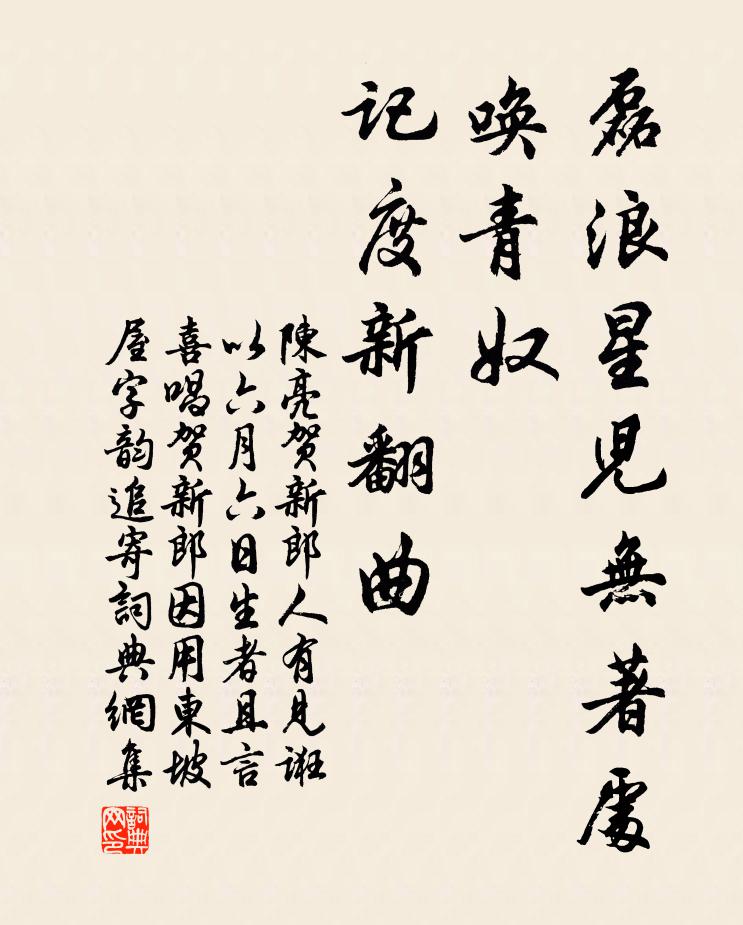 磊浪星兒無著處
喚青奴
記度新翻曲
陳亮賀新郎人有見誑
以六月六日生者且言
喜唱賀新郎因用東坡
屋字韵追寄詞典網集
詞典网印